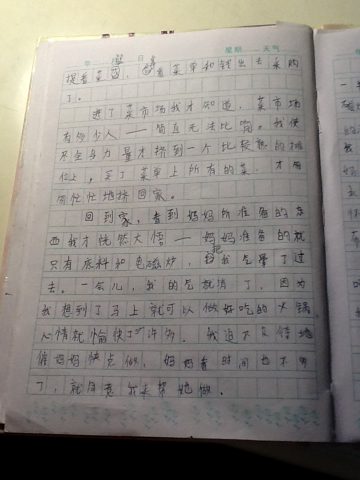 年 月 日 星期 天气
提着菜篮，拿着菜单和钱出去采购
了。
进了菜市场我才知道，菜市场
有多少人——简直无法比喻。我使
尽全身力量才挤到一个比较熟的摊
位上，买了菜单上所有的菜，才匆
匆忙忙地挤回家。
回到家，看到妈妈所准备的东
西我才恍然大悟——妈妈准备的就
只有底料和电磁炉，把我气晕了过
去。一会儿，我的气就消了，因为
我想到了马上就可以做好吃的火锅
心情就愉快了许多。我迫不及待地
催妈妈快点做，妈妈看时间也不早
了，就同意我来帮她做。